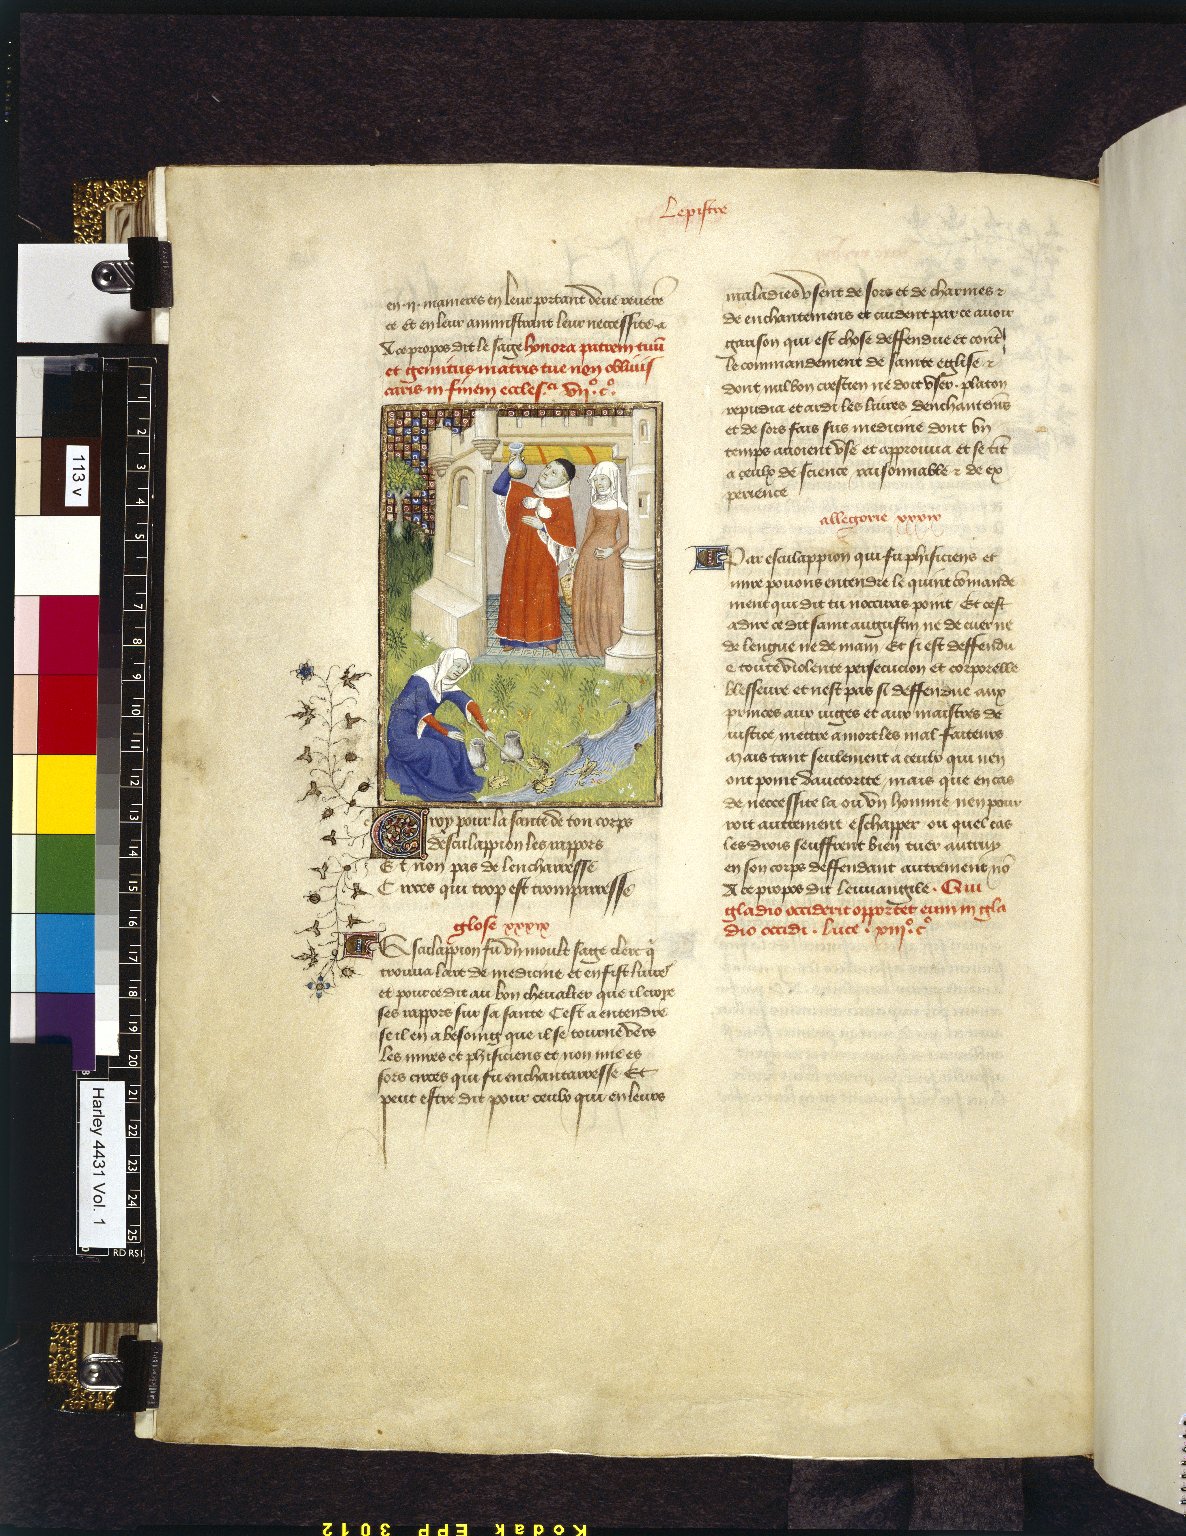 Lepistre
en .ii. manieres en leur portant deue revere
ce et en leur aminstrant leur neccessite a
A ce propos dit le sage honora patrem tuu
et gemitus matris tue non oblivis
caris in finem eccles. vii. c.
Croy pour la sante de ton corps
desculappion les rappors
Et non pas de lencharresse
Circes qui trop est tromparresse
glose xxxix
Esculappion fu un moult sage clerc q
trouva lart de medicine et en fist livres
et pour ce dit au bon chevalier que il croye
ses rappors sur sa sante Cest a entendre
se il en a besoing que il se tourne vers
les mires et phisiciens et non mie es
sors circes qui fu enchantarresse Et
peut estre dit pour ceulx qui en leurs
maladies usent de sors et de charmes et
de enchantemens et cuident par ce avoir
garison qui est chose deffendue et cont
le commandement de sainte eglise et
dont nul bon crestien ne doit user. platon
repudia et ardi les livres denchantemens
et de sors fais sus medicine dont un
temps avoient use et approuva et se tit
a ceulx de science raisonnable et de ex
perience
allegorie xxxix
Par esculappion qui fu phisiciens et
mire povons entendre le quint comande
ment qui dit tu noccuras point Et cest
a dire ce dit saint augustin ne de cuer ne
de lengue ne de main Et si est deffendu
e toute violente persecucion et corporelle
blesseure et nest pas si deffendue aux
princes aux iuges et aux maistres de
iustice mettre a mort les mal faiteurs
Mais tant seulement a ceulx qui nen
ont point dauctorite mais que en cas
de neccessite la ou un homme nen pour
roit autrement eschapper ou quel cas
les drois seuffrent bien tuer autruy
en son corps deffendant autrement no
A ce propos dit leuvangile. Qui
gladio occiderit opportet eum in gla
dio occidi. luce. xiii. c.
113 v
Harley 4431 Vol. 1
1
2
3
4
5
7
8
9
10
11
12
13
14
15
16
17
18
19
20
21
22
23
24
25
RD RSI
Kodak EPP 3012